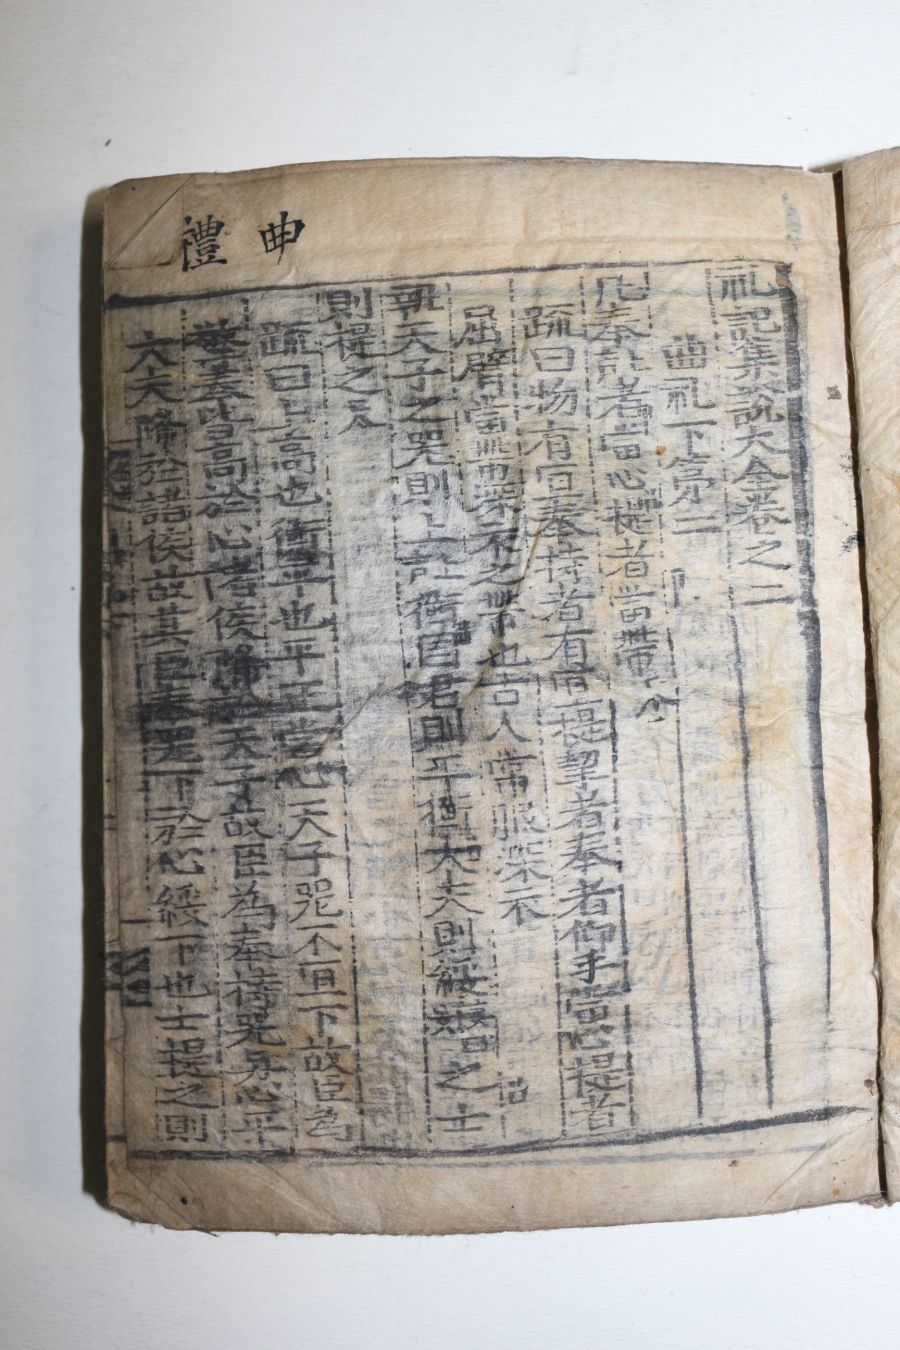 曲禮
礼記集說大全卷之二
曲礼下第二
凡奉者當心提者當帶
疏曰物有宜奉持者有宜提挈者奉者仰手當心提者
屈臂當帶深衣之帶也古人常服深衣
執天子之器則上衡国君則平衡大夫則綏之士
則提之
疏曰上高也衡平也平正當心天子器不宜下故臣為
擎奉皆高於心諸侯降於天子故臣為奉持器與心平
大夫降於諸侯故其臣奉器下於心綏下也士提之則